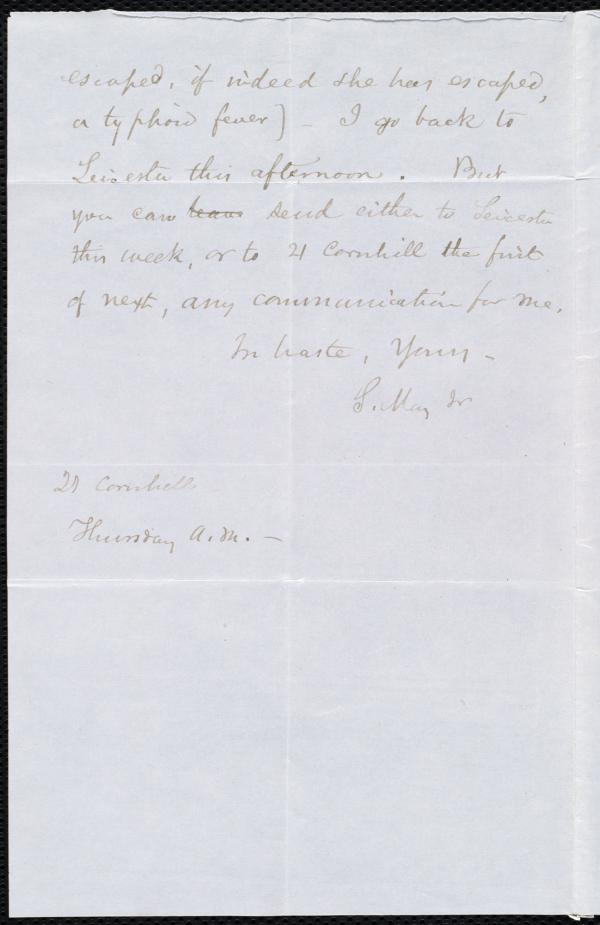 escaped, if indeed she has escaped,
a typhoid fever] – I go back to
Leicester this afternoon. But
you can leave send either to Leicester
this week, or to 21 Cornhill the first
of next, any communication for me.
In haste, Yours –
S. May Jr
21 Cornhill
Thursday A.M. –